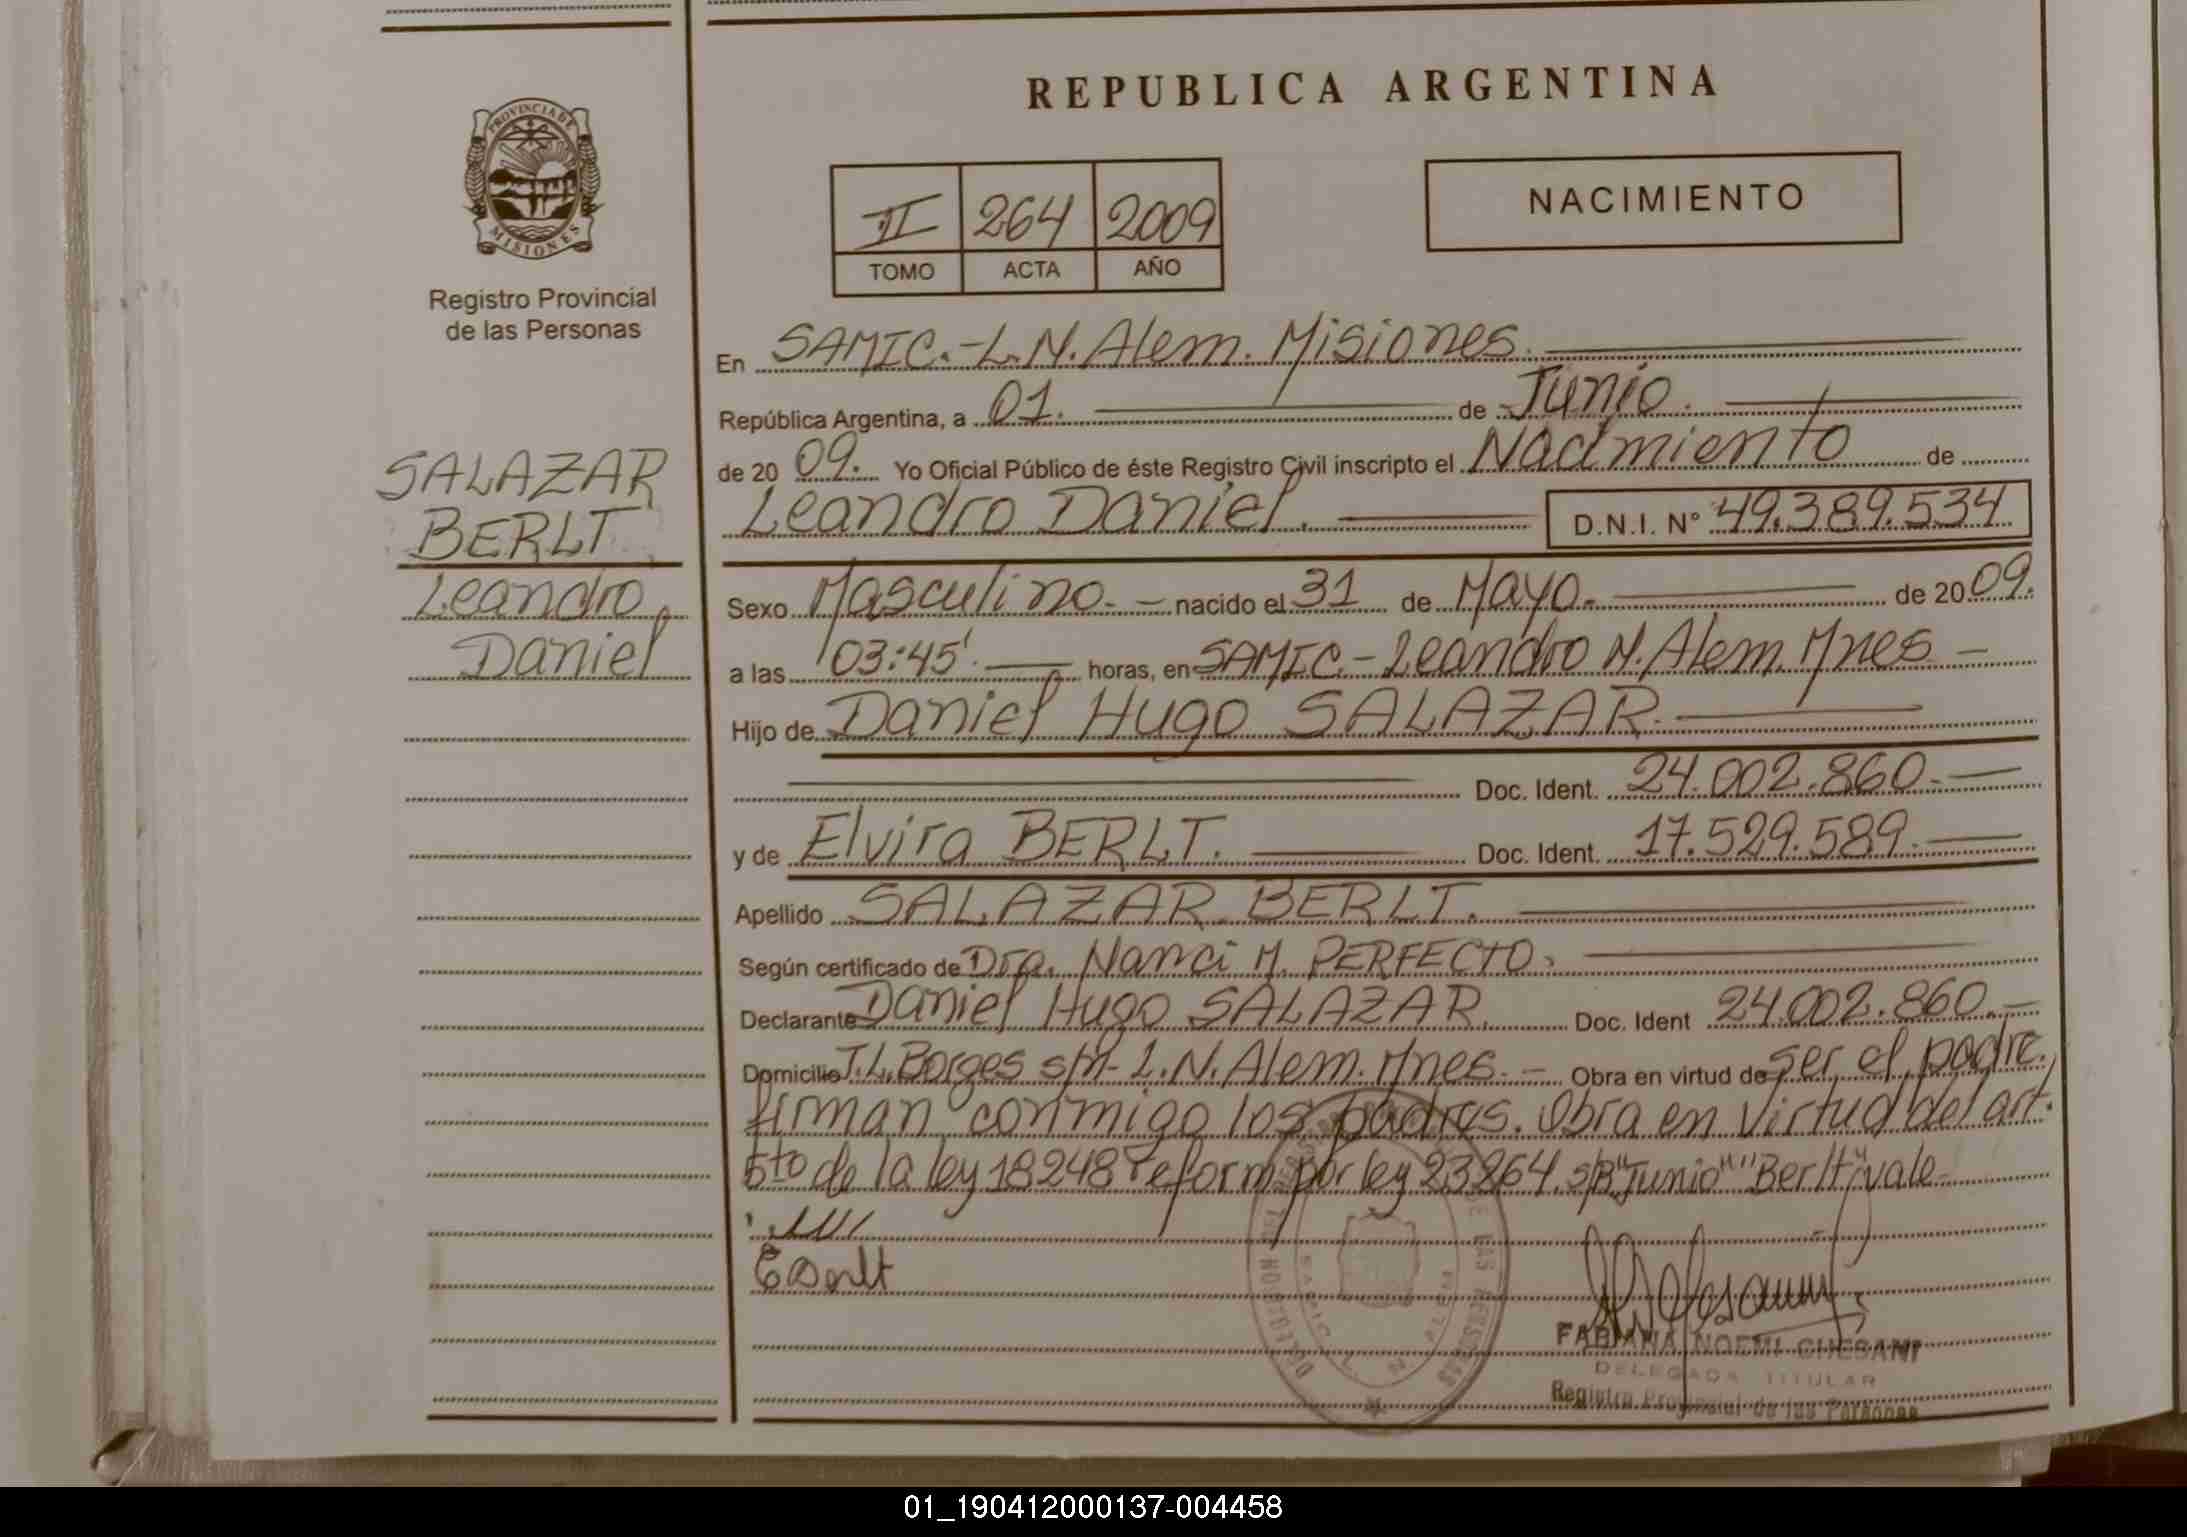 REPUBLICA ARGENTINA
PROVINCIA DE
MISIONES
Registro Provincial
de las Personas
II 264 2009
TOMO ACTA AÑO
NACIMIENTO
SALAZAR
BERLT
Leandro
Daniel
En SAMIC.-L.N.Alem. Misiones.
República Argentina, a 01. de Junio.
de 20 09. Yo Oficial Público de éste Registro Civil inscripto el Nacimiento de
Leandro Daniel. D.N.I. N° 49.389.534
Sexo Masculino.- nacido el 31 de Mayo.- de 20 09.
a las 03:45'. horas, en SAMIC.-Leandro N.Alem.Mnes -
Hijo de Daniel Hugo SALAZAR.
Doc. Ident. 24.002.860.-
y de Elvira BERLT. Doc. Ident. 17.529.589.-
Apellido SALAZAR BERLT.
Según certificado de Dra. Nanci M. PERFECTO.
Declarante Daniel Hugo SALAZAR. Doc. Ident 24.002.860.-
Domicilio J.L.Borges s/n- L.N.Alem.Mnes.- Obra en virtud de ser el padre.
firman conmigo los padres. Obra en virtud del art.
5to de la ley 18248 reform por ley 23264. s/B "Junio" "Berlt" vale
EBerlt
FABIANA NOEMI CHESANI
DELEGADA TITULAR
Registro Provincial de las Personas
01_190412000137-004458